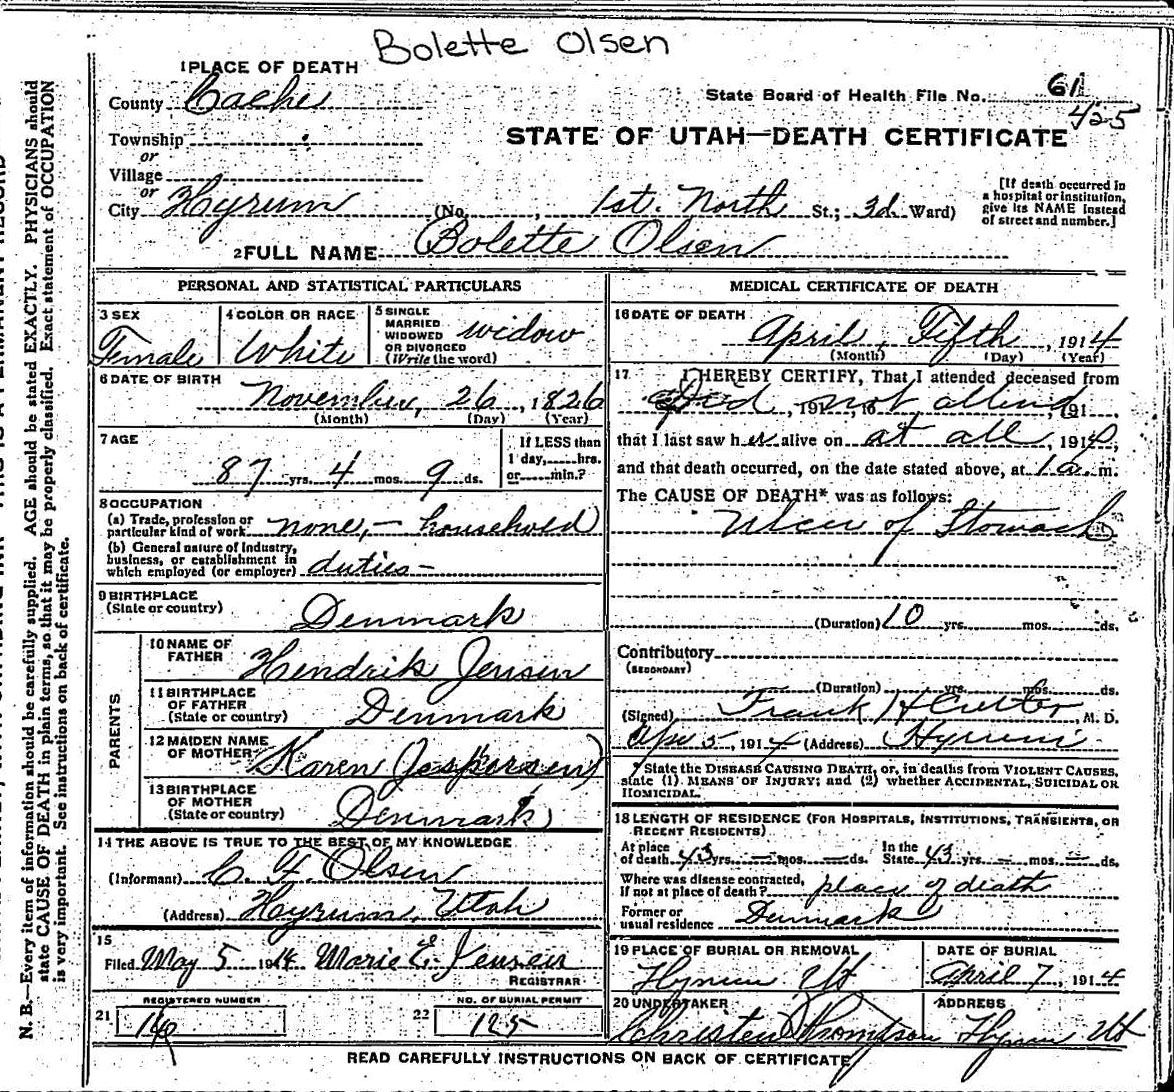 Bolette Olsen
1 PLACE OF DEATH
County Cache
State Board of Health File No. 61
425
Township
or
Village
or
City Hyrum
STATE OF UTAH—DEATH CERTIFICATE
(No. , 1st. North St.; 3d. Ward)
[If death occurred in
a hospital or institution,
give its NAME instead
of street and number.]
2 FULL NAME Bolette Olsen
PERSONAL AND STATISTICAL PARTICULARS
3 SEX
Female
4 COLOR OR RACE
White
5 SINGLE
MARRIED
WIDOWED
OR DIVORCED
(Write the word)
widow
6 DATE OF BIRTH
November, 26, 1826
(Month) (Day) (Year)
7 AGE
87 yrs. 4 mos. 9 ds.
If LESS than
1 day, hrs.
or min.?
8 OCCUPATION
(a) Trade, profession or
particular kind of work none,— household
(b) General nature of Industry,
business, or establishment in
which employed (or employer) duties—
9 BIRTHPLACE
(State or country)
Denmark
PARENTS
10 NAME OF
FATHER
Hendrik Jensen
11 BIRTHPLACE
OF FATHER
(State or country)
Denmark
12 MAIDEN NAME
OF MOTHER
Karen (Jespersen)
13 BIRTHPLACE
OF MOTHER
(State or country)
Denmark
14 THE ABOVE IS TRUE TO THE BEST OF MY KNOWLEDGE
(Informant) C. F. Olsen
(Address) Hyrum, Utah
15
Filed May 5 1914 Marie E. Jensen
REGISTRAR
REGISTERED NUMBER
21
NO. OF BURIAL PERMIT
22 125
MEDICAL CERTIFICATE OF DEATH
16 DATE OF DEATH
April, Fifth, 1914
(Month) (Day) (Year)
17 I HEREBY CERTIFY, That I attended deceased from
Did , 191 , to not attend 191 ,
that I last saw her alive on at all , 191 ,
and that death occurred, on the date stated above, at 1 a. m.
The CAUSE OF DEATH* was as follows:
Ulcer of Stomach
(Duration) 10 yrs. mos. ds.
Contributory
(SECONDARY)
(Duration) yrs. mos. ds.
(Signed) Frank H , M. D.
Apr 5, 1914 (Address) Hyrum
*State the DISEASE CAUSING DEATH, or, in deaths from VIOLENT CAUSES,
state (1) MEANS OF INJURY; and (2) whether ACCIDENTAL, SUICIDAL OR
HOMICIDAL.
18 LENGTH OF RESIDENCE (FOR HOSPITALS, INSTITUTIONS, TRANSIENTS, OR
RECENT RESIDENTS)
At place
of death 43 yrs. — mos. — ds.
In the
State 43 yrs. — mos. — ds.
Where was disease contracted,
if not at place of death? place of death
Former or
usual residence Denmark
19 PLACE OF BURIAL OR REMOVAL
Hyrum Ut
DATE OF BURIAL
April 7, 1914
20 UNDERTAKER
Christen Thompson
ADDRESS
Hyrum Ut
READ CAREFULLY INSTRUCTIONS ON BACK OF CERTIFICATE
N. B.—Every item of information should be carefully supplied. AGE should be stated EXACTLY. PHYSICIANS should
state CAUSE OF DEATH in plain terms, so that it may be properly classified. Exact statement of OCCUPATION
is very important. See instructions on back of certificate.